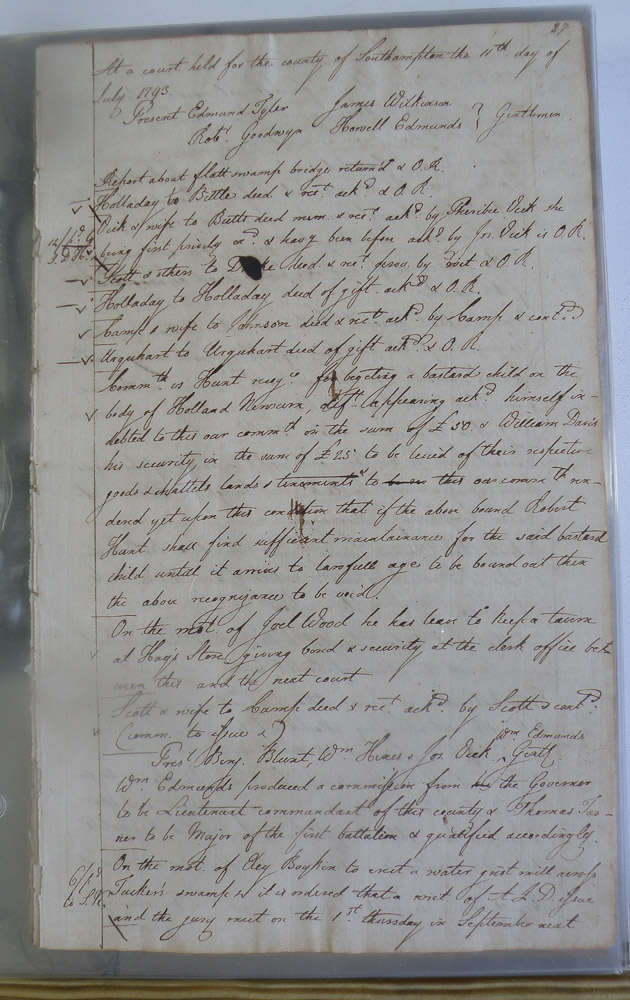 27
At a court held for the county of Southampton the 11th day of
July 1793.
Present Edmund Tyler James Wilkinson
Robt. Goodwyn Howell Edmunds } Gentlemen
Report about flatt swamp bridge return'd & O.R.
Holladay to Bittle deed & rect. ackd. & O.R.
Vick & wife to Butts deed mem. & rect. ackd. by Pheribee Vick she
being first privily exd. & havg. been before ackd. by Jos. Vick is O.R.
Scott & others to deed & rect. prov. by wit & O.R.
Holladay to Holladay deed of gift ackd. & O.R.
Camp & wife to Johnson deed & rect. ackd. by Camp & contd.
Urquhart to Urquhart deed of gift ackd. & O.R.
Commth. vs Hunt recogce. for begeting a bastard child on the
body of Holland Newsum, deft. appearing ackd. himself in-
debted to this our commth. in the sum of £50. & William Davis
his security in the sum of £25 to be levied of their respective
goods & chattels lands & tenements to this our commth. ren-
dered yet upon this condition that if the above bound Robert
Hunt shall find sufficient maintainance for the said bastard
child untill it arrives to lawfull age to be bound out then
the above recognizance to be void.
On the mot. of Joel Wood he has leave to keep a tavern
at Hay's Store, giving bond & security at the clerk office bet-
ween this and the next court
Scott & wife to Camp deed & rect. ackd. by Scott & contd.
Comn. to issue &
Wm Edmunds
Prest. Benj. Blunt, Wm Hines & Jos. Vick Gentl.
Wm Edmunds produced a commission from the Governor
to be Lieutenant commandant of this county & Thomas Tur-
ner to be Major of the first battalion & qualified accordingly.
On the mot. of Eley Boykin to erect a water grist mill across
Tucker's swamp it is ordered that a writ of A.Q.D. issue
and the jury meet on the 1st thursday in September next